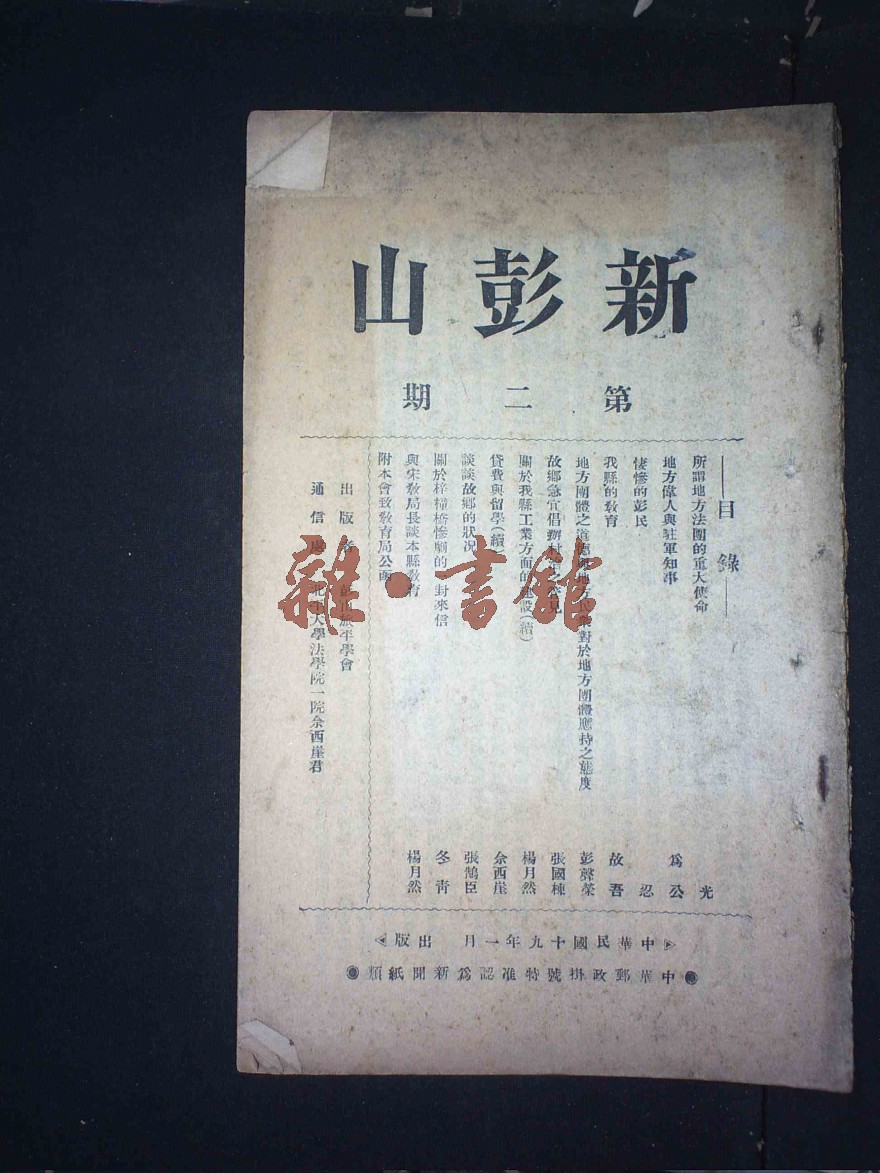 新彭山
第二期
目錄
所謂地方法團的重大使命 光
地方偉人與駐軍知事 爲公
悽慘的彭民 忍
我縣的敎育 故吾
地方團體之道 地方民衆對於地方團體應持之態度 彭聲榮
故鄉急宜倡辦 之 見 張國棟
關於我縣工業方面的建設(續) 楊月然
貸費與留學(續) 余西崖
談談故鄉的狀況 張鵠臣
關於梓橦橋慘劇的一封來信 冬靑
與宋敎局長談本縣敎育 楊月然
附本會致敎育局公函
出版者 彭山旅平學會
通信處 北平大學法學院一院余西崖君
中華民國十九年一月 出版
中華郵政掛號特准認爲新聞紙類
雜·書館